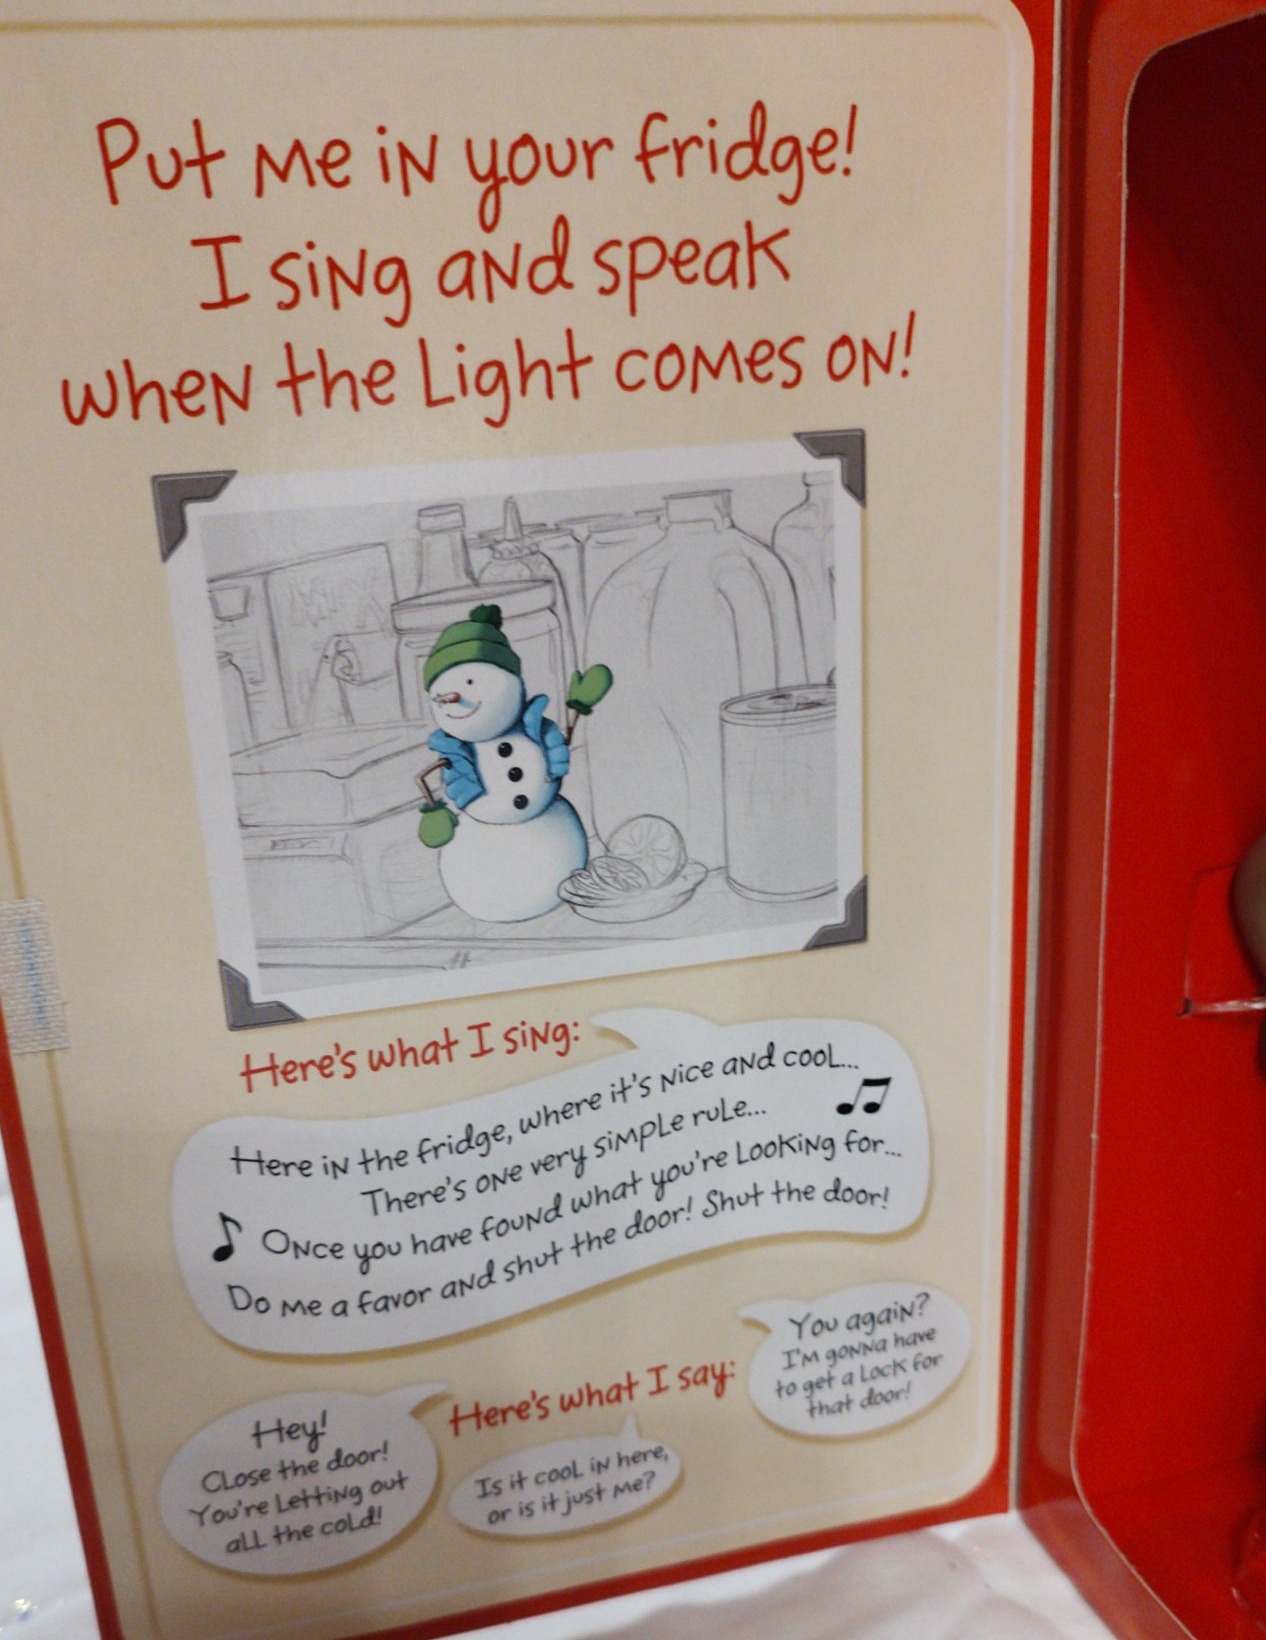 Put me in your fridge!
I sing and speak
when the light comes on!
Here's what I sing:
Here in the fridge, where it's nice and cool...
There's one very simple rule...
Once you have found what you're looking for...
Do me a favor and shut the door! Shut the door!
Here's what I say:
You again?
I'm gonna have
to get a lock for
that door!
Hey!
Close the door!
You're letting out
all the cold!
Is it cool in here,
or is it just me?